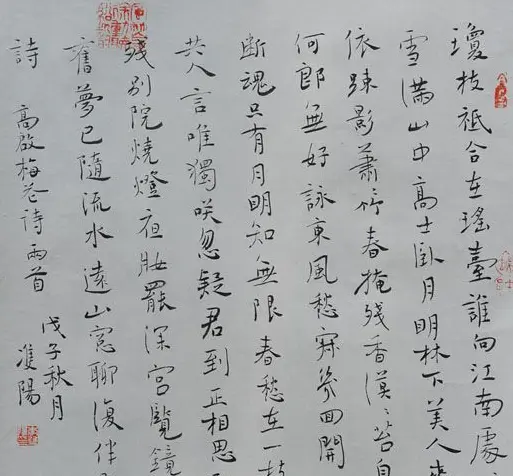 瓊枝祇合在瑤臺誰向江南處
雪滿山中高士臥月明林下美人來
依踈影蕭竹春掩殘香漠〻苔自
何郎無好詠東風愁寂幾回開
斷魂只有月明知無限春愁在一枝
共人言唯獨笑忽疑君到正相思
殘別院燒燈夜妝罷深宮覽鏡
舊夢已隨流水遠山窓聊復伴
詩
高啟梅花詩兩首
戊子秋月
陽